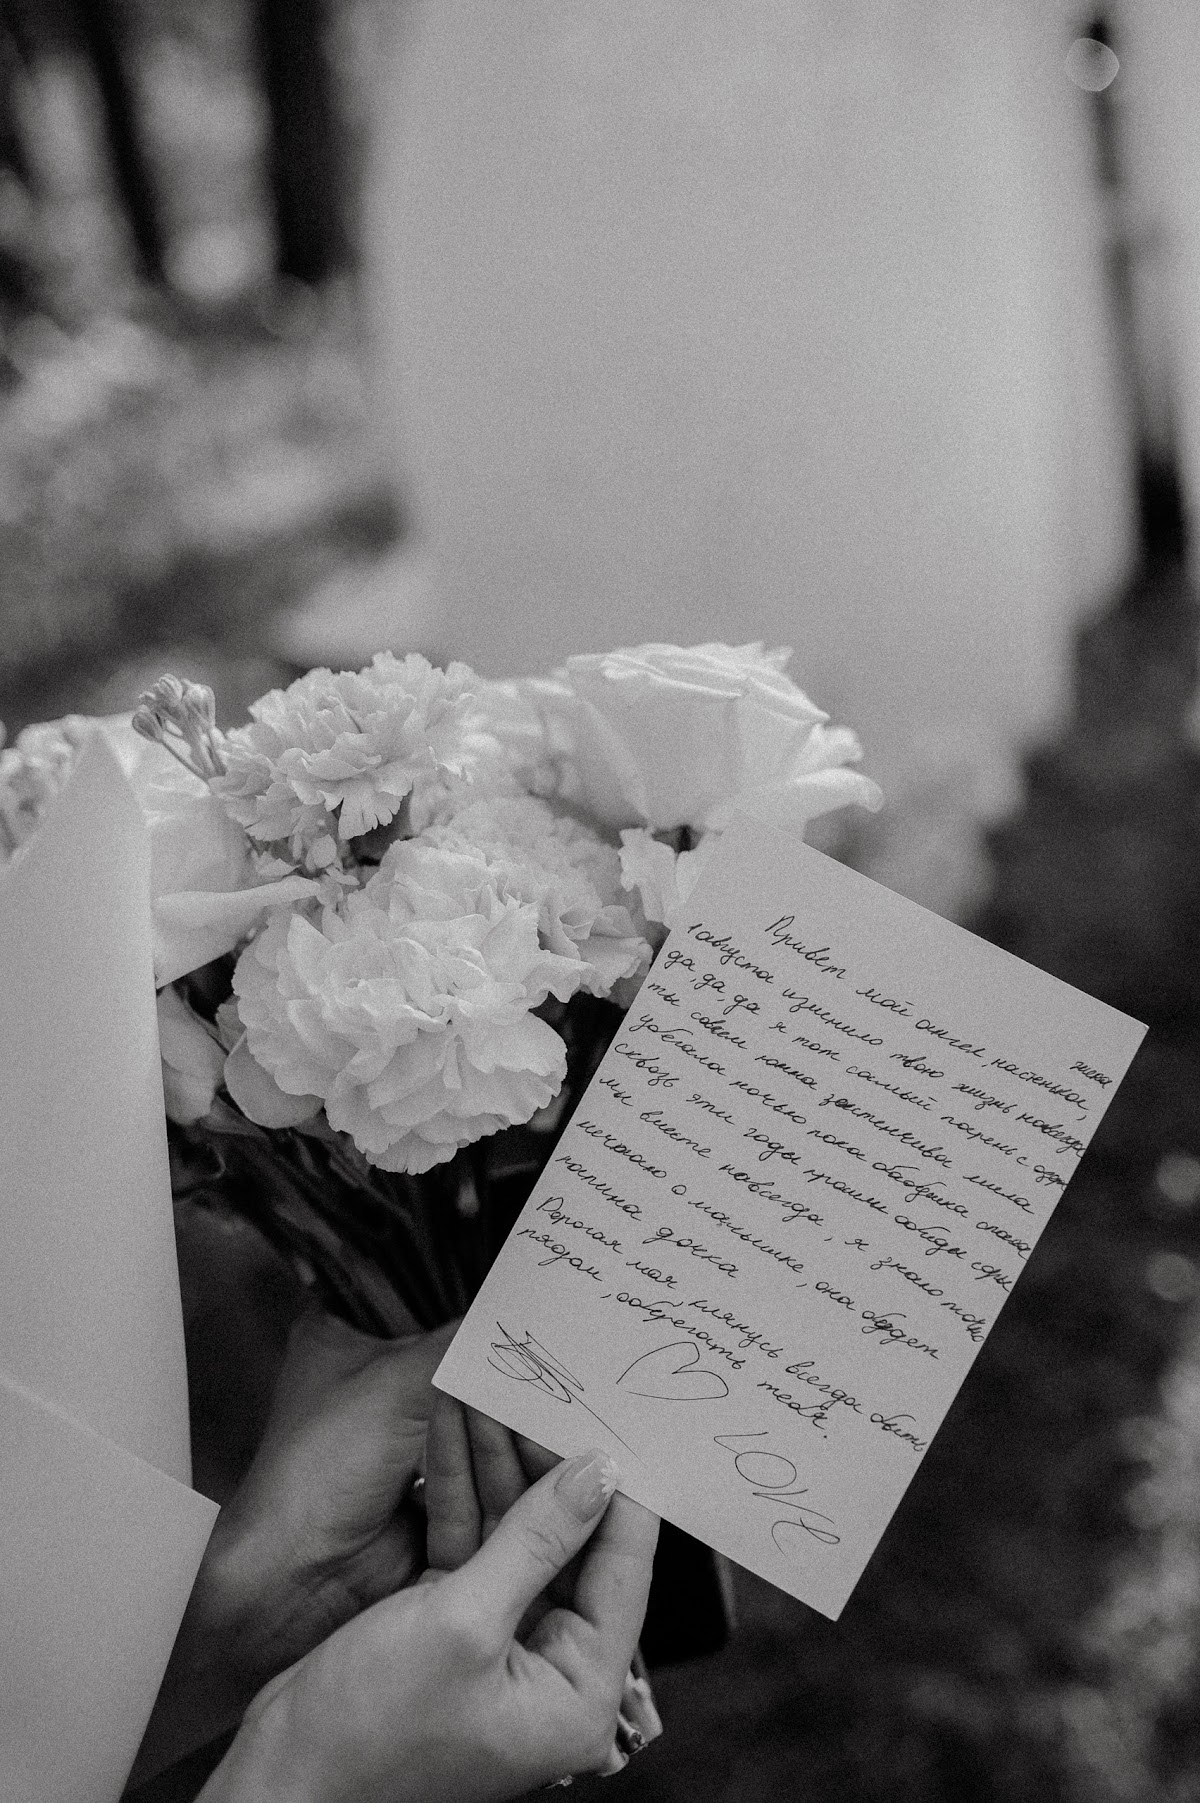 Привет мой ангел, настенька,
жена
1 августа изменило твою жизнь навсегда
да, да, да я тот самый парень с
ты совсем юнна застенчива мила
убегала ночью пока бабушка спала
сквозь эти годы прошли обиды ссоры
мы вместе навсегда, я знаю точно
мечтаю о малышке, она будет
папина дочка
Дорогая моя, клянусь всегда быть
рядом, оберегать тебя.
LOVE